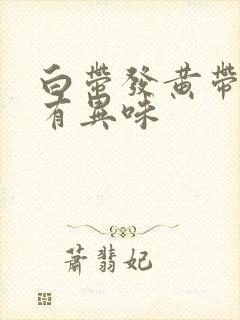 白帶發黃帶
有異味
蕭翡妃